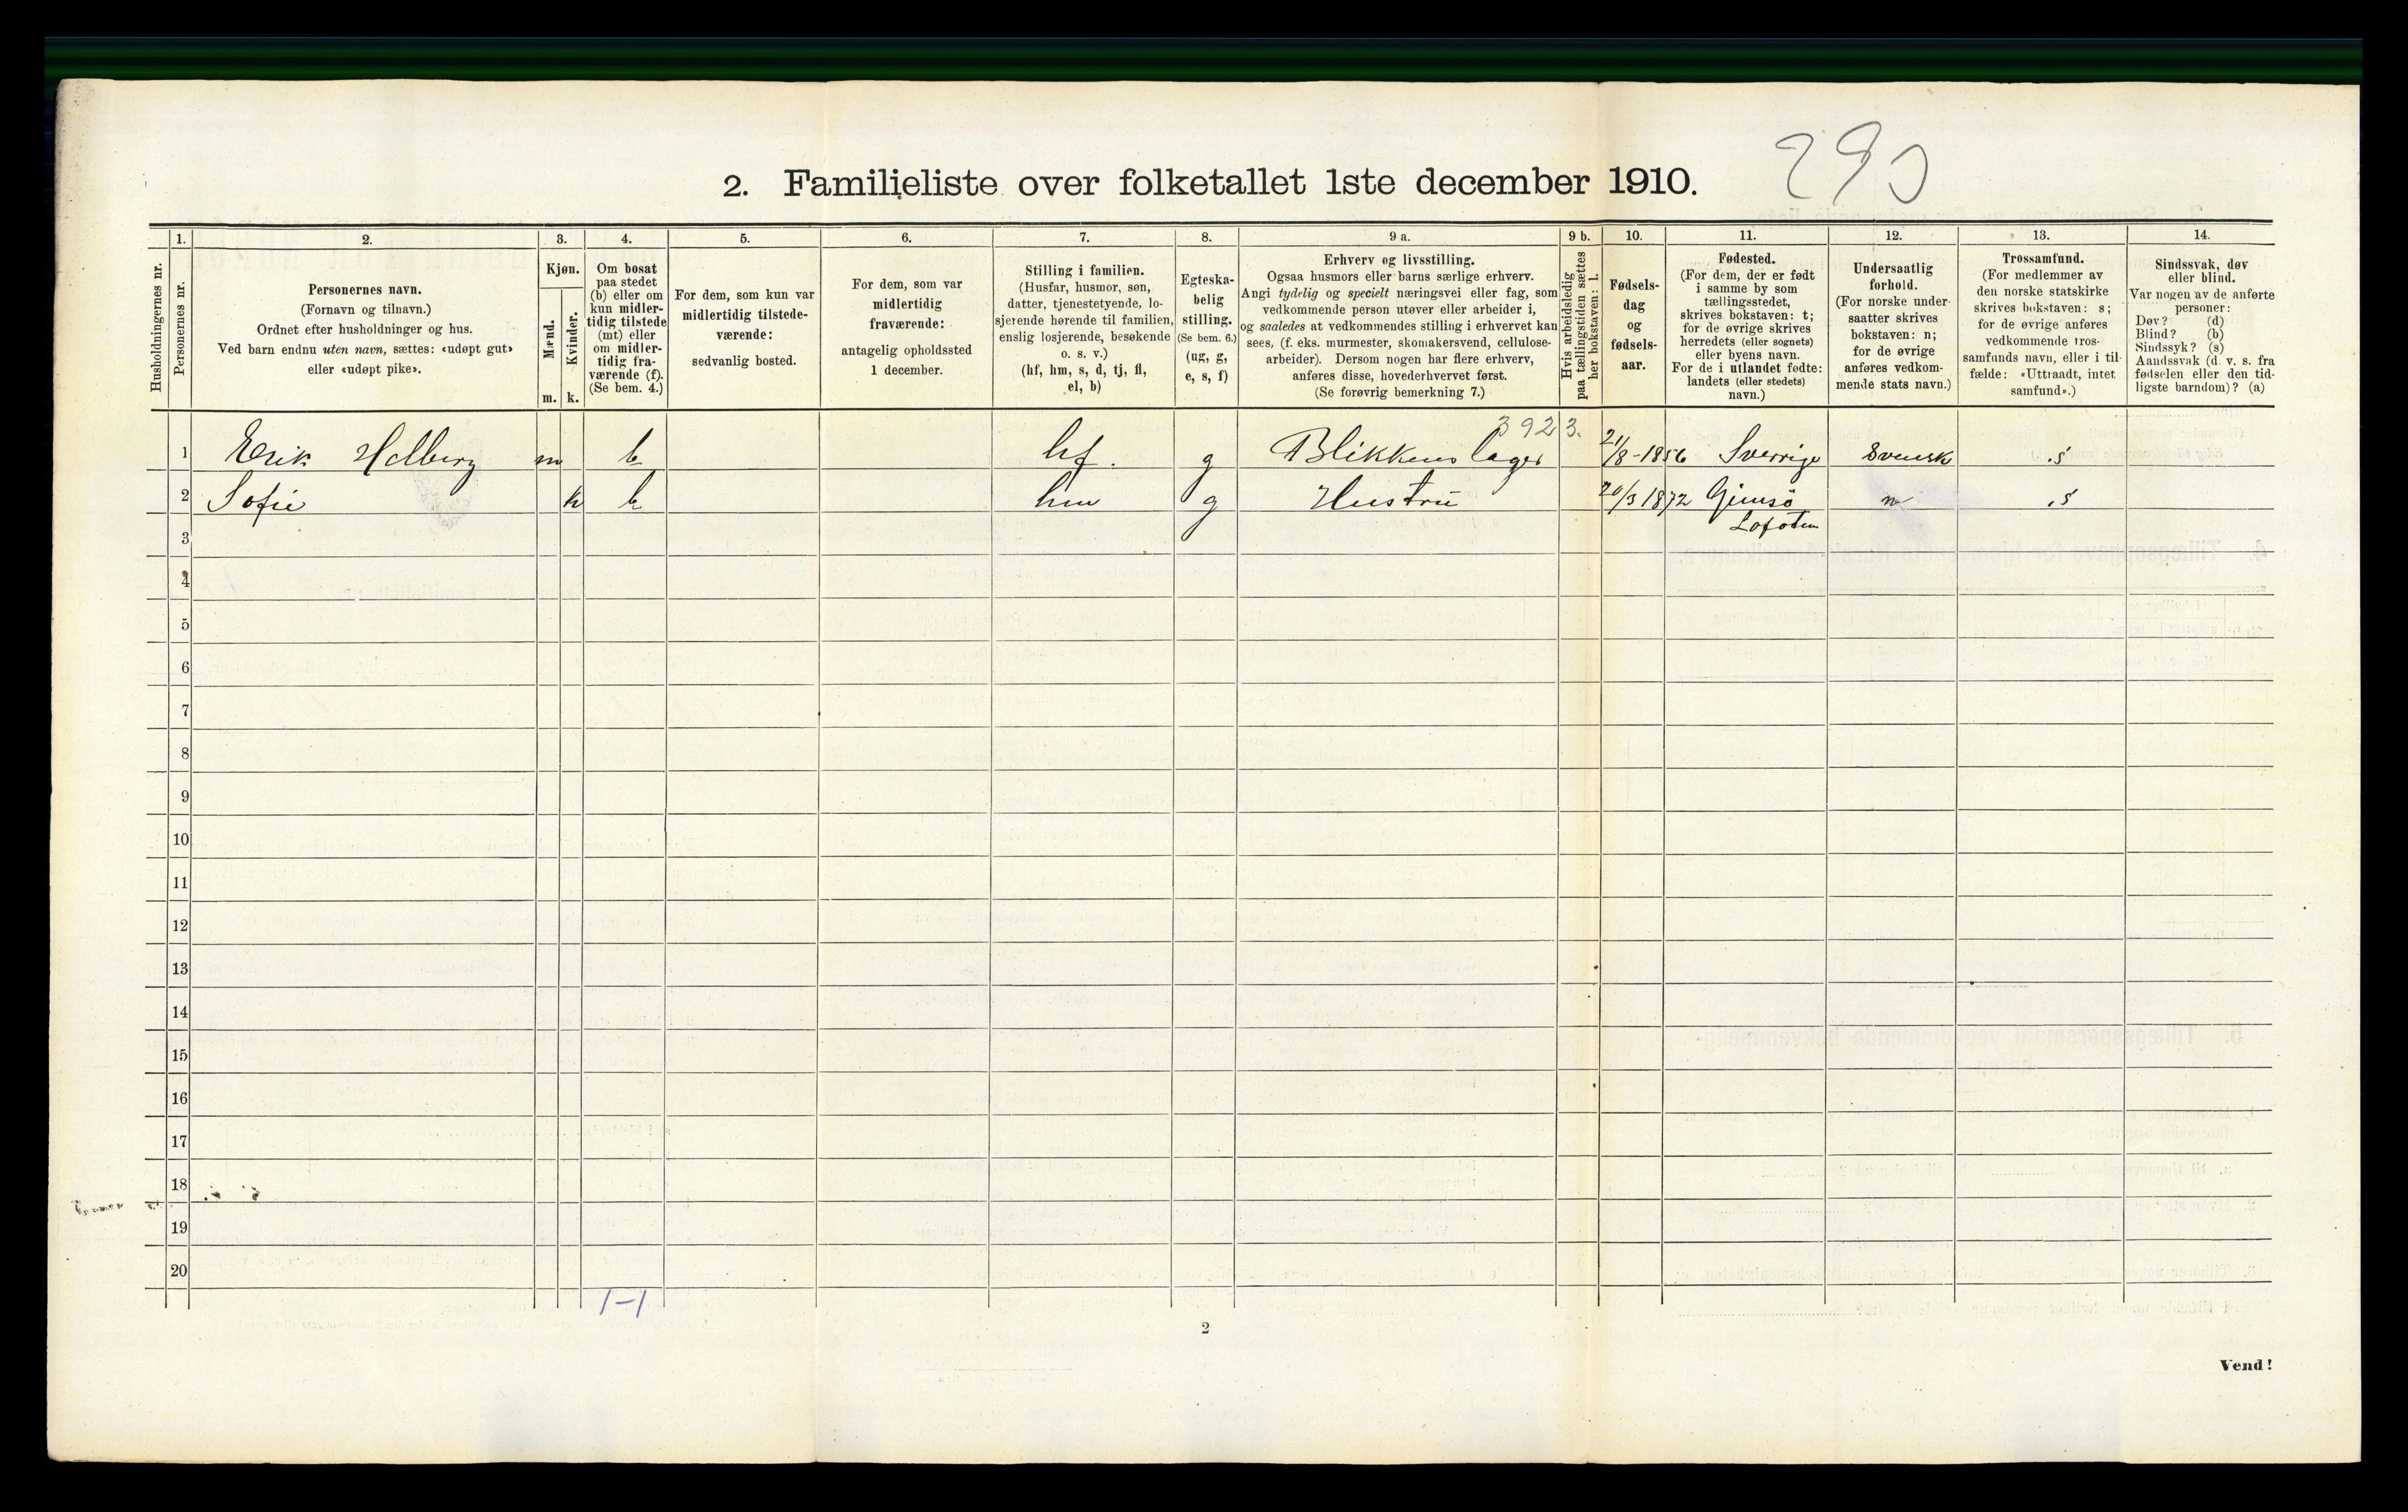 290
2. Familieliste over folketallet 1ste december 1910.
Husholdningernes nr.
1.
Personernes nr.
2.
Personernes navn.
(Fornavn og tilnavn.)
Ordnet efter husholdninger og hus.
Ved barn endnu uten navn, sættes: «udøpt gut»
eller «udøpt pike».
3.
Kjøn.
Mænd.
Kvinder.
m. k.
4.
Om bosat
paa stedet
(b) eller om
kun midler-
tidig tilstede
(mt) eller
om midler-
tidig fra-
værende (f).
(Se bem. 4.)
5.
For dem, som kun var
midlertidig tilstede-
værende:
sedvanlig bosted.
6.
For dem, som var
midlertidig
fraværende:
antagelig opholdssted
1 december.
7.
Stilling i familien.
(Husfar, husmor, søn,
datter, tjenestetyende, lo-
sjerende hørende til familien,
enslig losjerende, besøkende
o. s. v.)
(hf, hm, s, d, tj, fl,
el, b)
8.
Egteska-
belig
stilling.
(Se bem. 6.)
(ug, g,
e, s, f)
9 a.
Erhverv og livsstilling.
Ogsaa husmors eller barns særlige erhverv.
Angi tydelig og specielt næringsvei eller fag, som
vedkommende person utøver eller arbeider i,
og saaledes at vedkommendes stilling i erhvervet kan
sees, (f. eks. murmester, skomakersvend, cellulose-
arbeider). Dersom nogen har flere erhverv,
anføres disse, hovederhvervet først.
(Se forøvrig bemerkning 7.)
9 b.
Hvis arbeidsledig
paa tællingstiden sættes
her bokstaven: l.
10.
Fødsels-
dag
og
fødsels-
aar.
11.
Fødested.
(For dem, der er født
i samme by som
tællingsstedet,
skrives bokstaven: t;
for de øvrige skrives
herredets (eller sognets)
eller byens navn.
For de i utlandet fødte:
landets (eller stedets)
navn.)
12.
Undersaatlig
forhold.
(For norske under-
saatter skrives
bokstaven: n;
for de øvrige
anføres vedkom-
mende stats navn.)
13.
Trossamfund.
(For medlemmer av
den norske statskirke
skrives bokstaven: s;
for de øvrige anføres
vedkommende tros-
samfunds navn, eller i til-
fælde: «Uttraadt, intet
samfund».)
14.
Sindssvak, døv
eller blind.
Var nogen av de anførte
personer:
Døv? (d)
Blind? (b)
Sindssyk? (s)
Aandssvak (d. v. s. fra
fødselen eller den tid-
ligste barndom)? (a)
3923.
1 Erik Holberg m b hf. g Blikkenslager 21/8-1856 Sverrige Svensk s
2 Sofie k b hm g Hustru 20/3 1872 Gimsö n s
Lofoten
3
4
5
6
7
8
9
10
11
12
13
14
15
16
17
18
19
20
1-1
2
Vend!